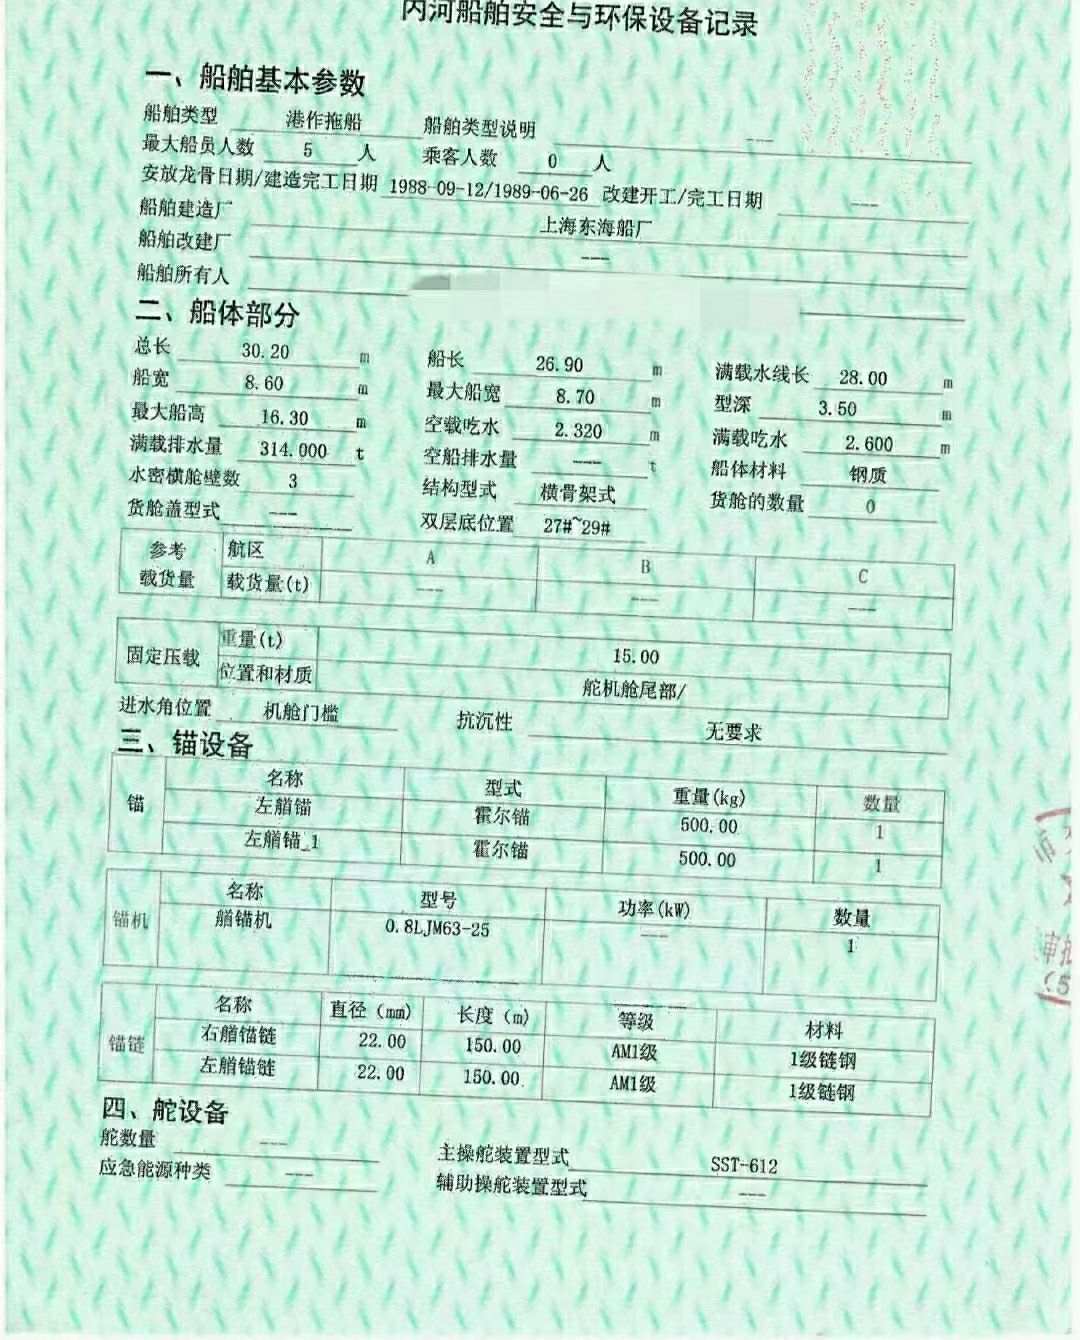 内河船舶安全与环保设备记录
一、船舶基本参数
船舶类型 港作拖船 船舶类型说明 ---
最大船员人数 5 人 乘客人数 0 人
安放龙骨日期/建造完工日期 1988-09-12/1989-06-26 改建开工/完工日期 ---
船舶建造厂 上海东海船厂
船舶改建厂 ---
船舶所有人
二、船体部分
总长 30.20 m 船长 26.90 m 满载水线长 28.00 m
船宽 8.60 m 最大船宽 8.70 m 型深 3.50 m
最大船高 16.30 m 空载吃水 2.320 m 满载吃水 2.600 m
满载排水量 314.000 t 空船排水量 --- t 船体材料 钢质
水密横舱壁数 3 结构型式 横骨架式 货舱的数量 0
货舱盖型式 --- 双层底位置 27#~29#
参考载货量 航区 A B C
载货量(t) --- --- ---
固定压载 重量(t) 15.00
位置和材质 舵机舱尾部/
进水角位置 机舱门槛 抗沉性 无要求
三、锚设备
锚 名称 型式 重量(kg) 数量
左艏锚 霍尔锚 500.00 1
左艏锚_1 霍尔锚 500.00 1
锚机 名称 型号 功率(kW) 数量
艏锚机 0.8LJM63-25 --- 1
锚链 名称 直径（mm） 长度（m） 等级 材料
右艏锚链 22.00 150.00 AM1级 1级链钢
左艏锚链 22.00 150.00 AM1级 1级链钢
四、舵设备
舵数量 --- 主操舵装置型式 SST-612
应急能源种类 --- 辅助操舵装置型式 ---